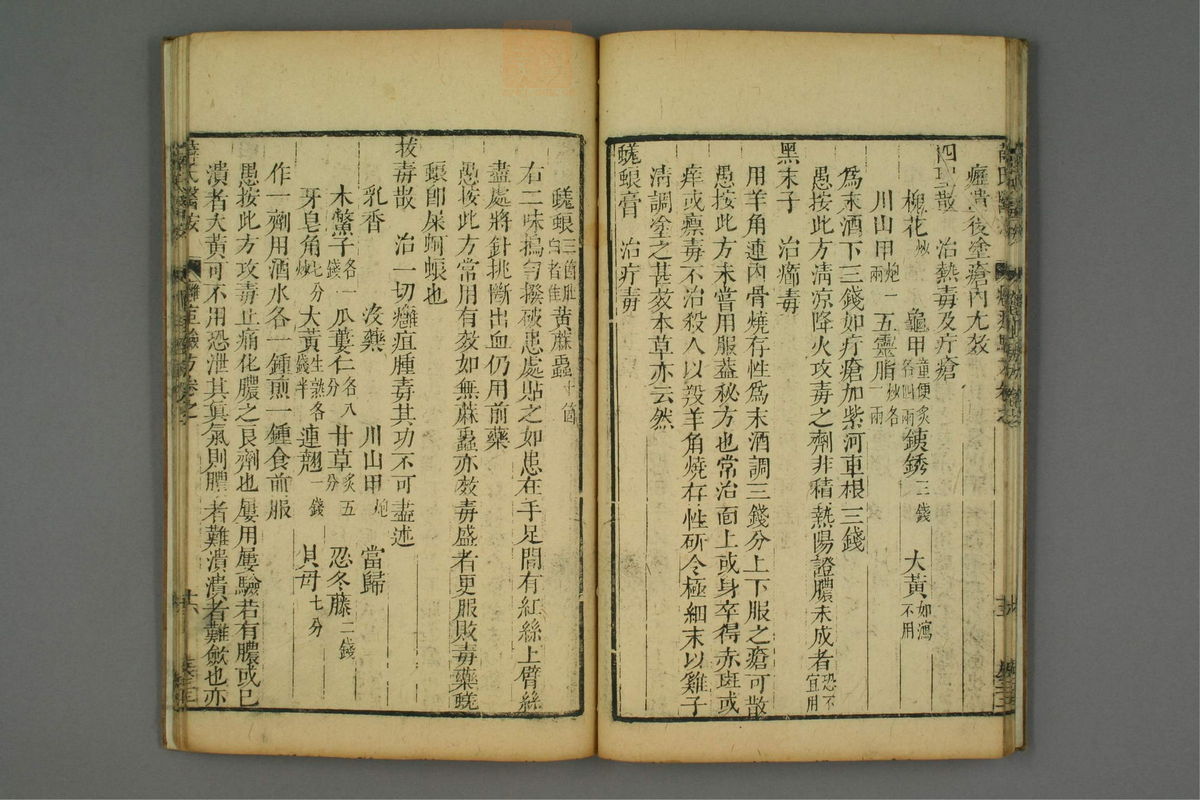 癧潰後塗瘡内尤效
四聖散　治熱毒及疔瘡
槐花炒　龜甲童便炙各四兩　銕銹三錢　大黃如瀉不用
川山甲炮一兩　五靈脂炒各一兩
爲末酒下三錢如疔瘡加紫河車根三錢
愚按此方清凉降火攻毒之劑非積熱陽證膿未成者恐不宜用
黑末子　治癤毒
用羊角連内骨燒存性爲末酒調三錢分上下服之瘡可散
愚按此方未嘗用服葢秘方也常治面上或身卒得赤斑或
痒或瘭毒不治殺人以羖羊角燒存性研令極細末以雞子
清調塗之甚效本草亦云然
蜣蜋膏　治疔毒
蜣蜋三箇肚白者佳　黃蔴蟲十箇
右二味搗勻撥破患處貼之如患在手足間有紅絲上臂絲
盡處將針挑斷出血仍用前藥
愚按此方常用有效如無蔴蟲亦效毒盛者更服敗毒藥蜣
蜋卽屎蚵蜋也
拔毒散　治一切癰疽腫毒其功不可盡述
乳香　没藥　川山甲炮　當歸
木鱉子各一錢　瓜蔞仁各八分　甘草炙五分　忍冬藤二錢
牙皂角七分炒　大黃生熟各錢半　連翹一錢　貝母七分
作一劑用酒水各一鍾煎一鍾食前服
愚按此方攻毒止痛化膿之良劑也屢用屢驗若有膿或已
潰者大黃可不用恐泄其眞氣則膿者難潰潰者難斂也亦
薛氏醫案　癰疽 方卷之　十六